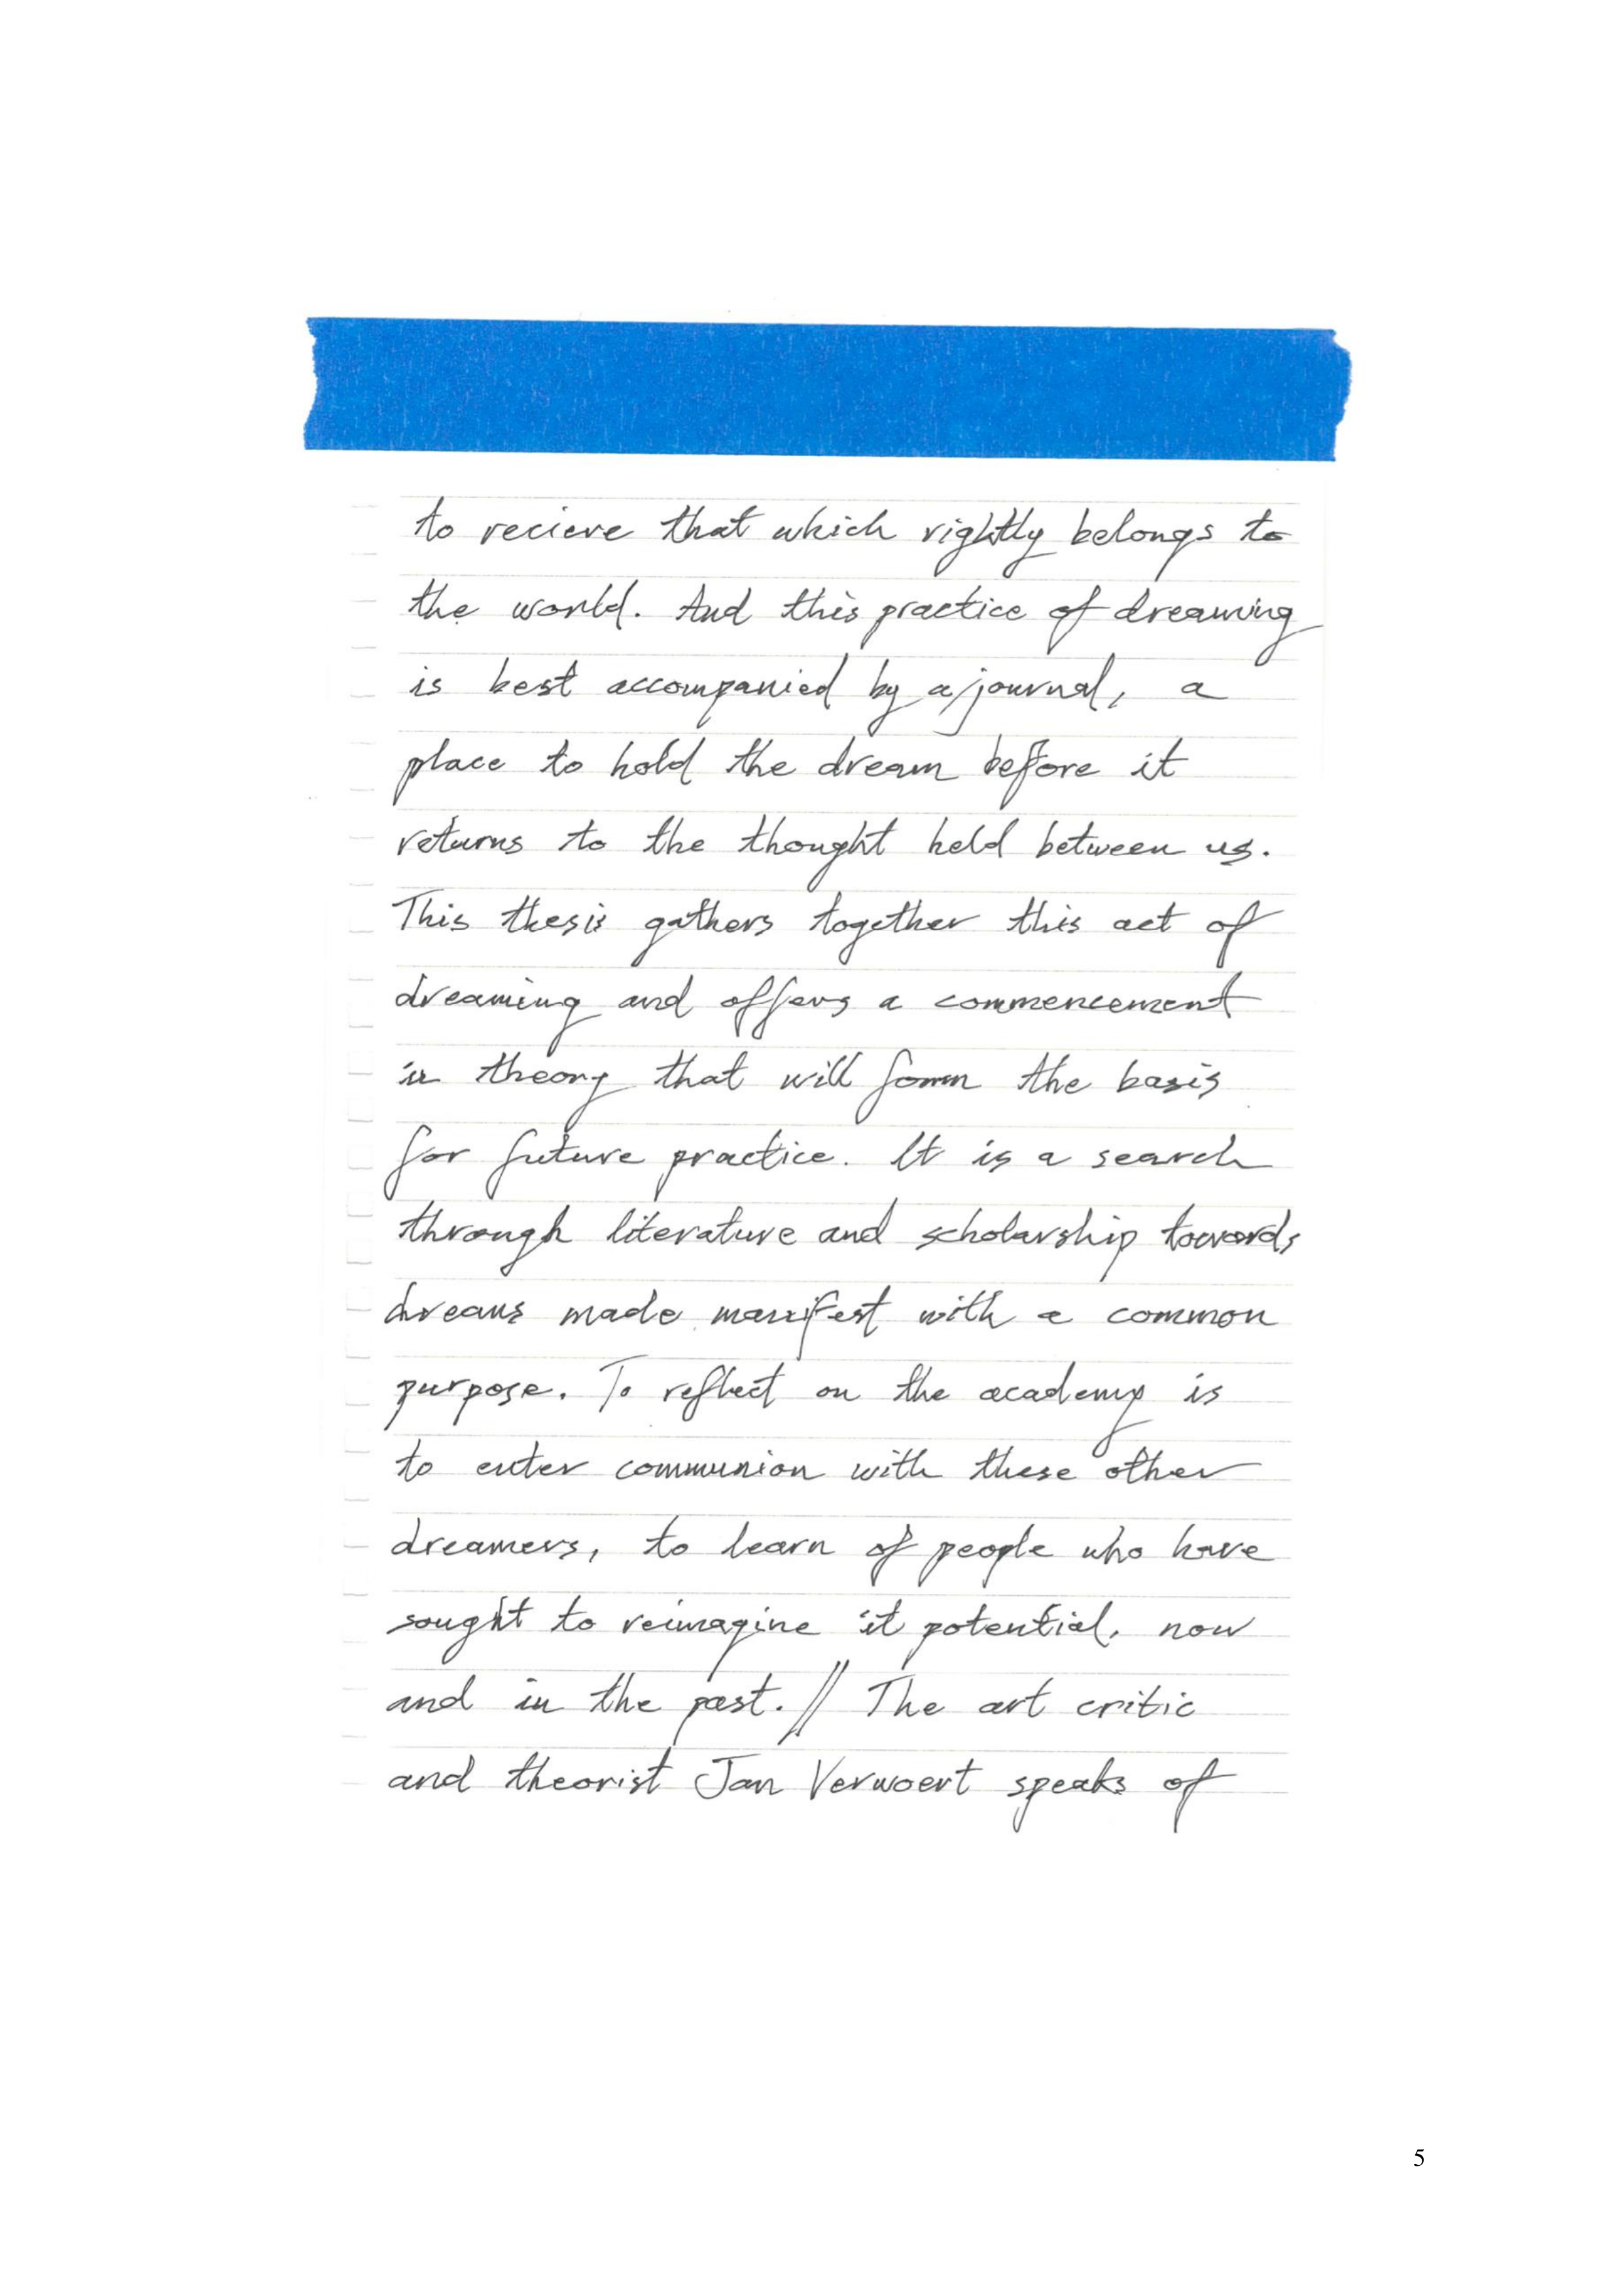 to recieve that which rightly belongs to
the world. And this practice of dreaming
is best accompanied by a journal, a
place to hold the dream before it
returns to the thought held between us.
This thesis gathers together this act of
dreaming and offers a commencement
in theory that will form the basis
for future practice. It is a search
through literature and scholarship towards
dreams made manifest with a common
purpose. To reflect on the academy is
to enter communion with these other
dreamers, to learn of people who have
sought to reimagine it potential, now
and in the past. // The art critic
and theorist Jan Verwoert speaks of
5